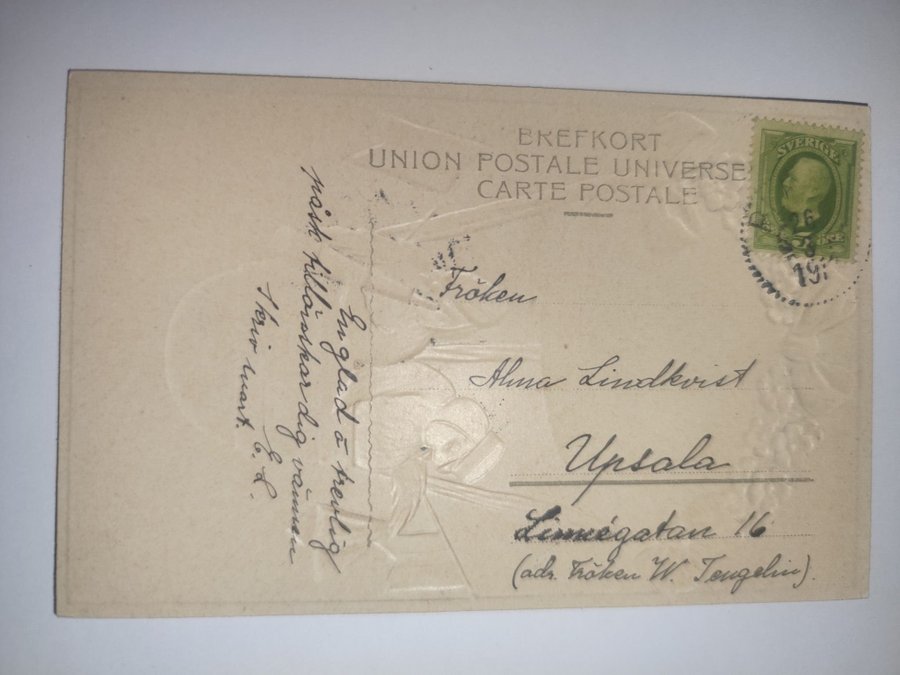 BREFKORT
UNION POSTALE UNIVERSE
CARTE POSTALE
SVERIGE
5 ÖRE
26
3
19
Fröken
Alma Lindkvist
Upsala
Linnégatan 16
(adr. Fröken W. Tengelin).
En glad å trevlig
påsk tillönskar dig vännen
E. L.
Skriv snart.